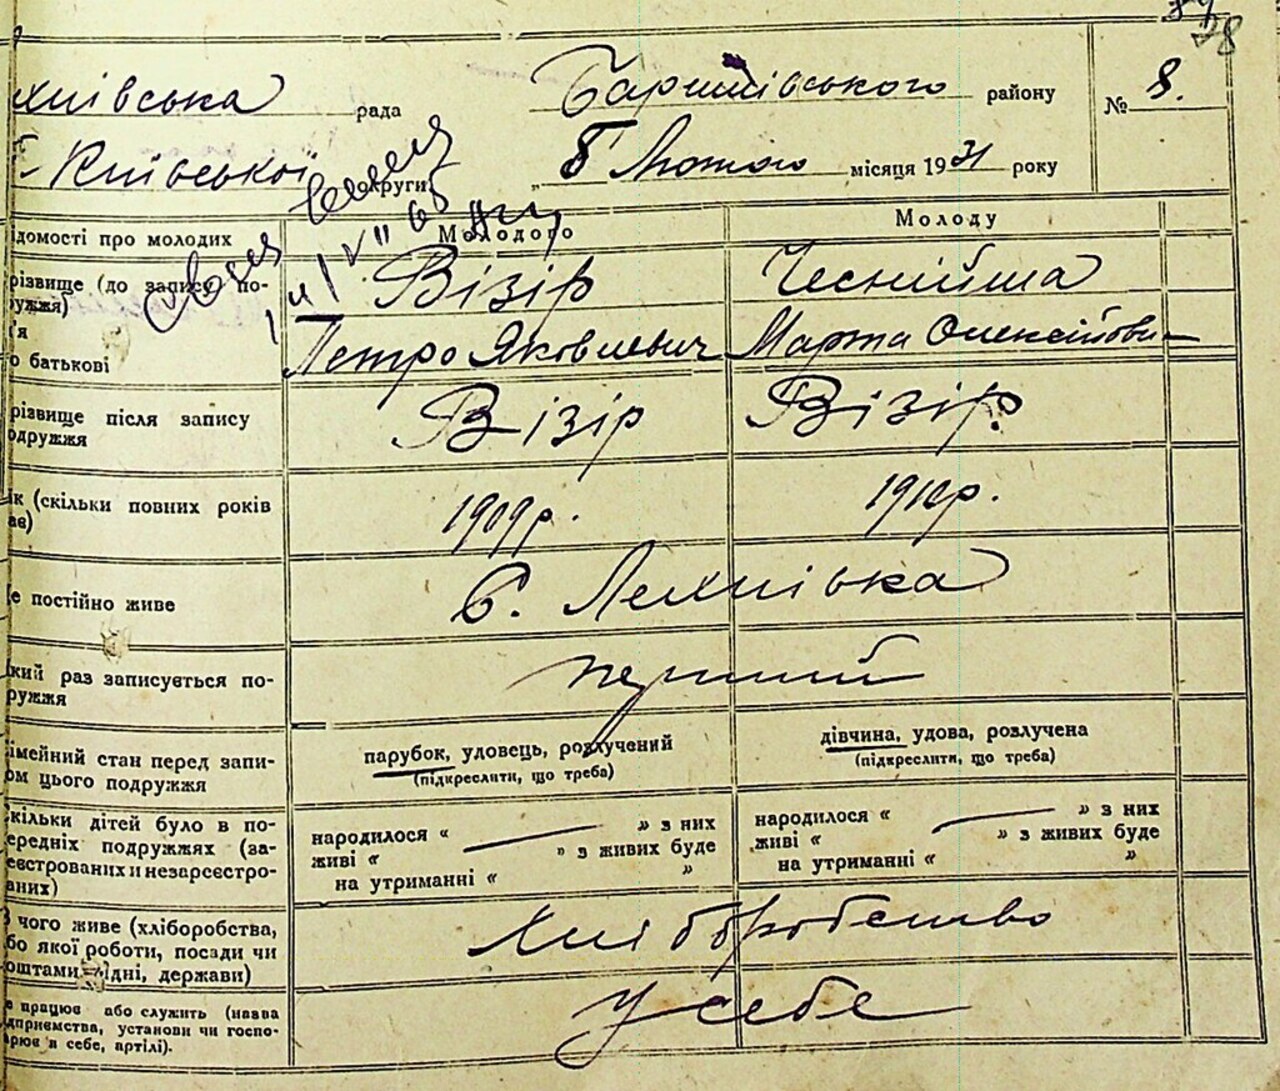 78
хнівська рада Баришівського району № 8.
Київської округи „ 5 Лютого місяця 1931 року
ідомості про молодих Молодого Молоду
різвище (до запису по-
ружжя) Візір Чеснійша
м'я
о батькові Петро Якович Марта Олексійови
різвище після запису
одружжя Візір Візір.
ік (скільки повних років
ає) 1909 р. 1910 р.
е постійно живе С. Лехнівка
кий раз записується по-
ружжя перший
імейний стан перед запи-
ом цього подружжя
парубок, удовець, розлучений дівчина, удова, розлучена
(підкреслити, що треба) (підкреслити, що треба)
кільки дітей було в по-
ередніх подружжях (за-
еєстрованих и незареєстро-
ваних)
народилося „ — ” з них народилося „ — ” з них
живі „ ” з живих буде живі „ ” з живих буде
на утриманні „ ” на утриманні „ ”
З чого живе (хліборобства,
бо якої роботи, посади чи
оштами рідні, держави) Хліборобство
е працює або служить (назва
ідприємства, установи чи госпо-
арює в себе, артілі). У себе